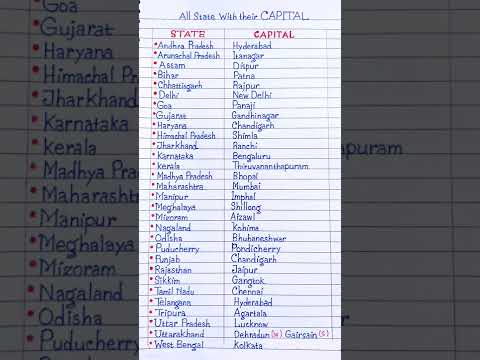 All State With their CAPITAL
STATE CAPITAL
Andhra Pradesh Hyderabad
Arunachal Pradesh Itanagar
Assam Dispur
Bihar Patna
Chhattisgarh Raipur
Delhi New Delhi
Goa Panaji
Gujarat Gandhinagar
Haryana Chandigarh
Himachal Pradesh Shimla
Jharkhand Ranchi
Karnataka Bengaluru
kerala Thiruvananthapuram
Madhya Pradesh Bhopal
Maharashtra Mumbai
Manipur Imphal
Meghalaya Shillong
Mizoram Aizawl
Nagaland Kohima
Odisha Bhubaneshwar
Puducherry Pondicherry
Punjab Chandigarh
Rajasthan Jaipur
Sikkim Gangtok
Tamil Nadu Chennai
Telangana Hyderabad
Tripura Agartala
Uttar Pradesh Lucknow
Uttarakhand Dehradun (W) Gairsain (S)
West Bengal Kolkata
Goa
Gujarat
Haryana
Himachal Pr
Jharkhand
Karnataka
kerala
Madhya Prad
Maharashtra
Manipur
Meghalaya
Mizoram
Nagaland
Odisha
Puducherry
apuram